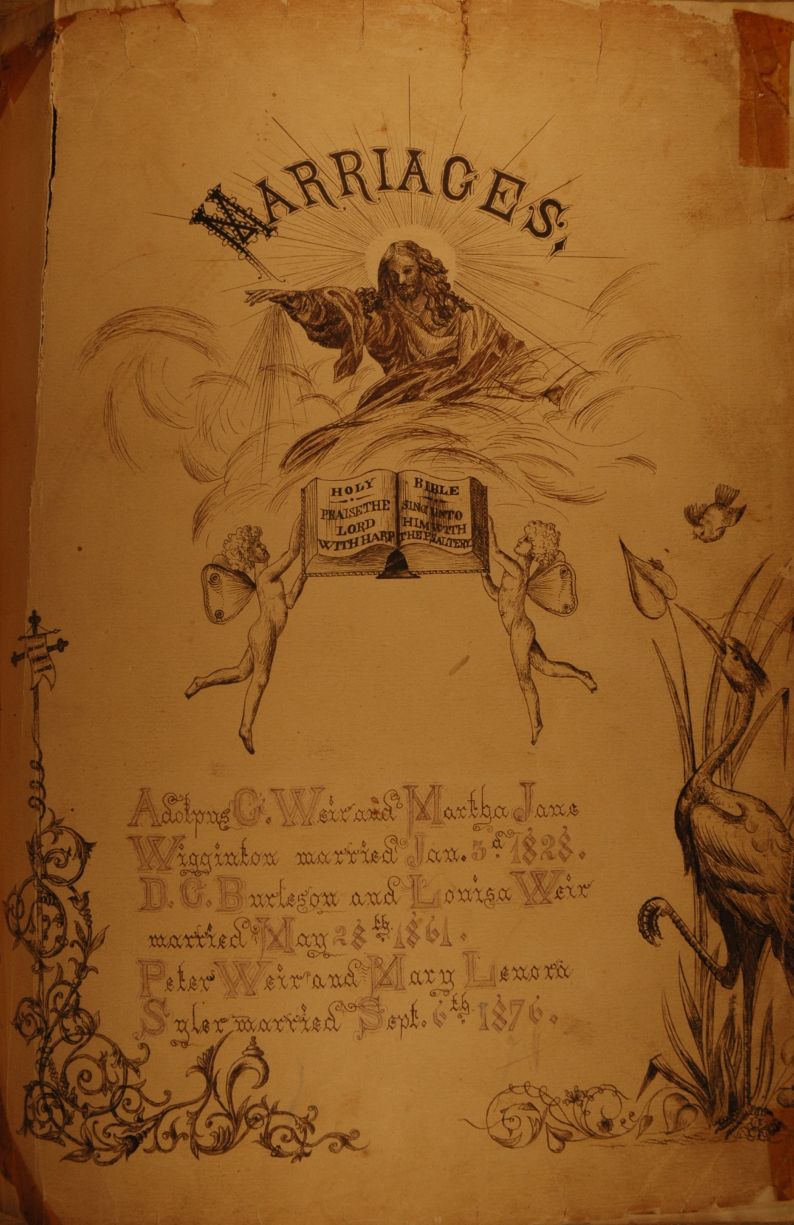 MARRIAGES.
HOLY BIBLE
PRAISE THE LORD WITH HARP
SING UNTO HIM WITH THE PSALTERY
Adolpus G. Weir and Martha Jane
Wigginton married Jan. 5d 1828.
D. C. Burleson and Louisa Weir
married May 28th 1861.
Peter Weir and Mary Lenora
Syler married Sept. 6th 1876.